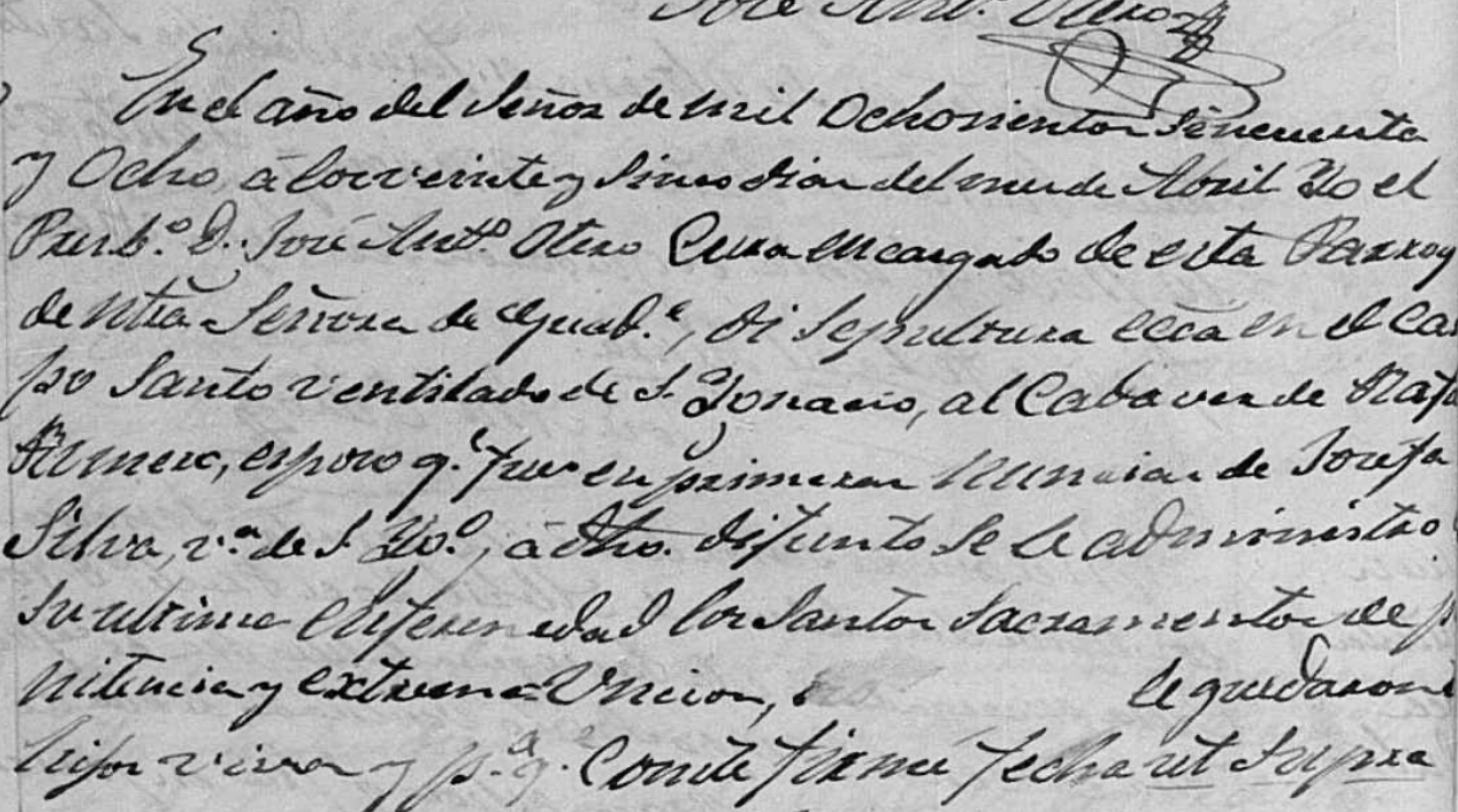 José Ant.º Otero
En el año del Señor de mil Ochosientos Sincuenta
y Ocho, á los veinte y Sinco dias del mes de Abril Yo el
Presb.º D. José Ant.º Otero Cura encargado de esta Parroq
de Ntra Señora de Guad.e, di Sepultura ecca en el Ca
po Santo ventilado de S. Ygnacio, al Cadaver de Rafa
Romero, esposo q.e fue en primeras Nuncias de Josefa
Silva, v.º de S. Yg.º, á dho. difunto se le administro
su ultima enfermedad los Santos Sacramentos de p
nitencia y extrema Uncion, le quedaron
hijos vivos y p.a q.e Conste firmé fecha ut Supra